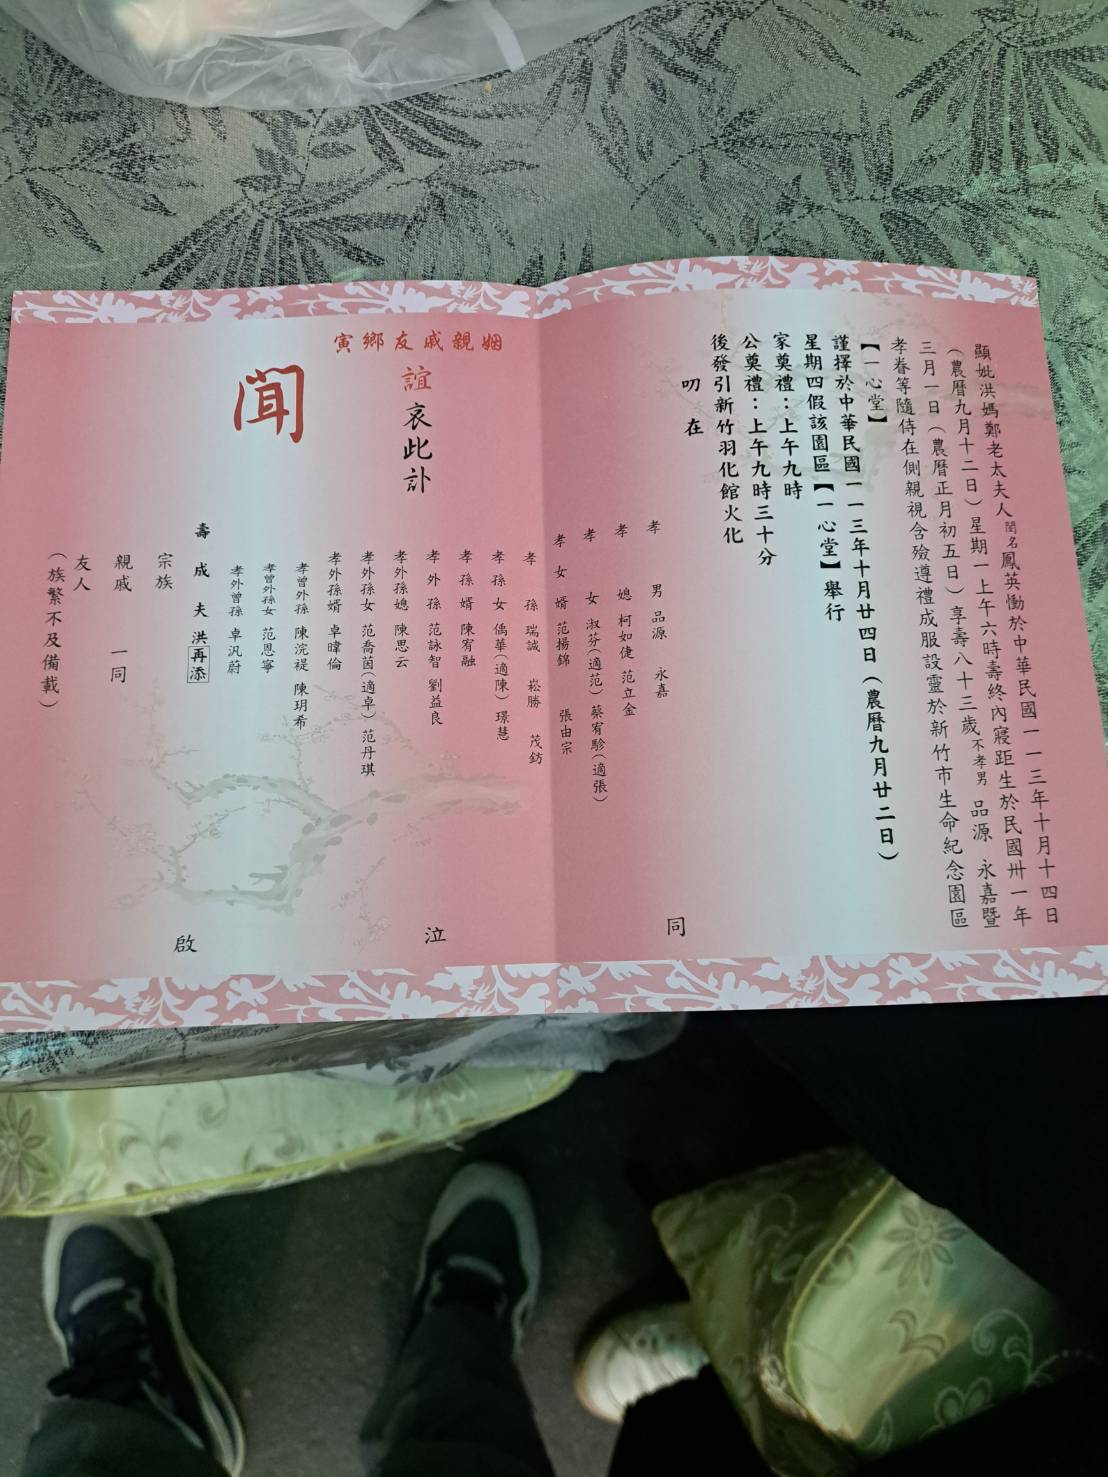 顯妣洪媽鄭老太夫人閨名鳳英慟於中華民國一一三年十月十四日
（農曆九月十二日）星期一上午六時壽終內寢距生於民國卅一年
三月一日（農曆正月初五日）享壽八十三歲不孝男品源 永嘉暨
孝眷等隨侍在側親視含殮遵禮成服設靈於新竹市生命紀念園區
【一心堂】
謹擇於中華民國一一三年十月廿四日（農曆九月廿二日）
星期四假該園區【一心堂】舉行
家奠禮：上午九時
公奠禮：上午九時三十分
後發引新竹羽化館火化
叨在
姻親戚友鄉寅
誼哀此訃
聞
孝男 品源 永嘉
孝媳 柯如倢 范立金
孝女 淑芬（適范） 蔡宥駗（適張）
孝女婿 范揚錦 張由宗
孝孫 瑞誠 崧勝 茂鈁
孝孫女 僑華（適陳） 璟慧
孝孫婿 陳宥融
孝外孫 范詠智 劉益良
孝外孫媳 陳思云
孝外孫女 范喬茵（適卓） 范丹琪
孝外孫婿 卓暐倫
孝曾外孫 陳浣禔 陳玥希
孝曾外孫女 范恩寧
孝外曾孫 卓汎蔚
壽成夫 洪再添
宗族
親戚 一同
友人
（族繁不及備載）
同
泣
啟